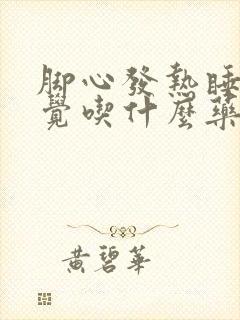 脚心發熱睡
覺喫什麼藥
黄碧華